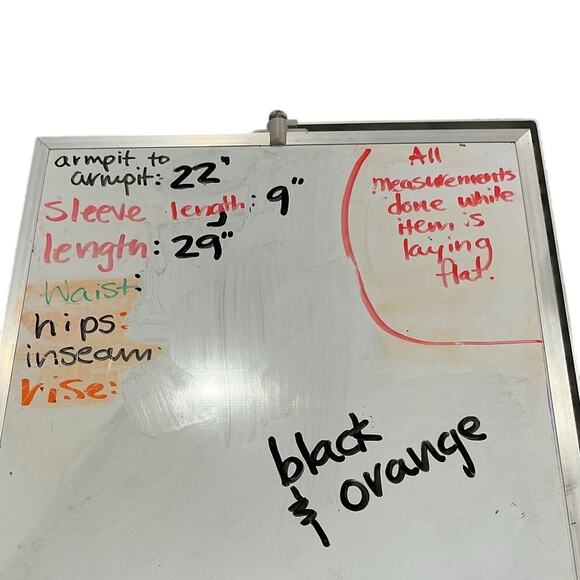 armpit to
armpit: 22"
Sleeve length: 9"
length: 29"
Waist:
hips:
inseam:
rise:
All
measurements
done while
item is
laying
flat.
black
& orange